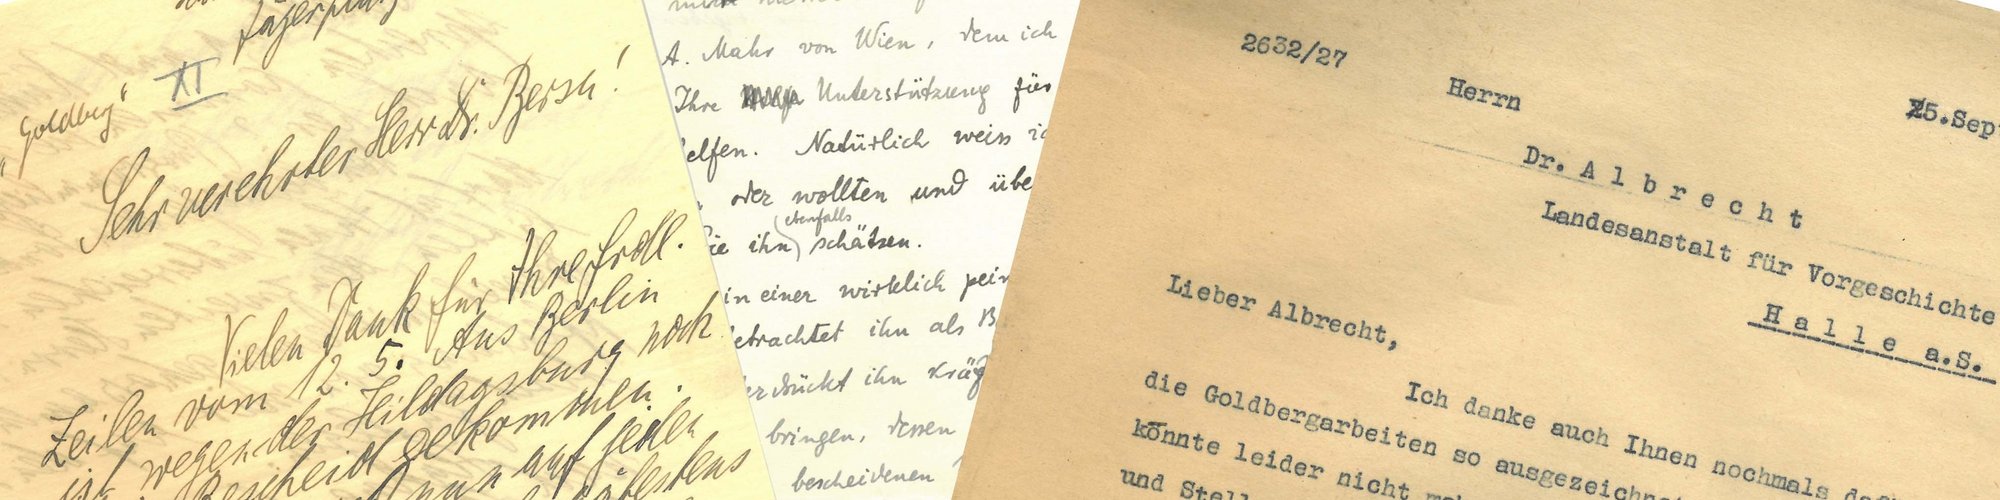 Jägerplatz
"Goldberg"
XI
Sehr verehrter Herr Dr. Bersu!
Vielen Dank für Ihre frdl.
Zeilen vom 12. 5. Aus Berlin
ist wegen der Hildagsburg noch
Bescheid gekommen.
nun auf jeden
spätestens
A. Mahr von Wien, dem ich
Ihre Unterstützung für
elfen. Natürlich weiss ic
oder wollten und übe
ebenfalls
Sie ihn schätzen.
in einer wirklich pein
betrachtet ihn als B
erdrückt ihn kräf
bringen, dessen
bescheidenen
2632/27
Herrn
25.Sept
Dr. A l b r e c h t
Landesanstalt für Vorgeschichte
H a l l e a.S.
Lieber Albrecht,
Ich danke auch Ihnen nochmals daf
die Goldbergarbeiten so ausgezeichnet
könnte leider nicht meh
und Stell